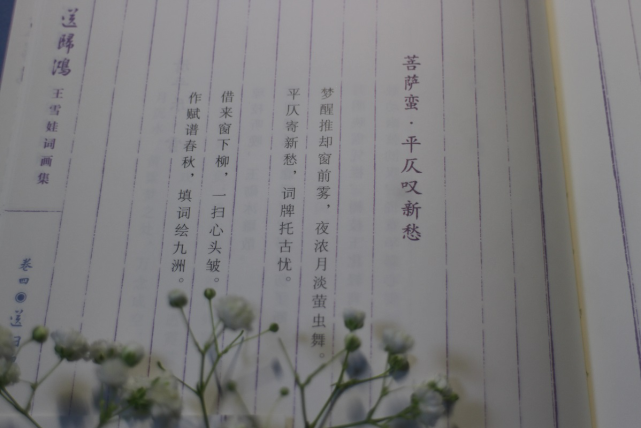 菩萨蛮·平仄叹新愁
梦醒推却窗前雾，夜浓月淡萤虫舞。
平仄寄新愁，词牌托古忧。
借来窗下柳，一扫心头皱。
作赋谱春秋，填词绘九洲。
送归鸿
王雪娃词画集
卷四
送